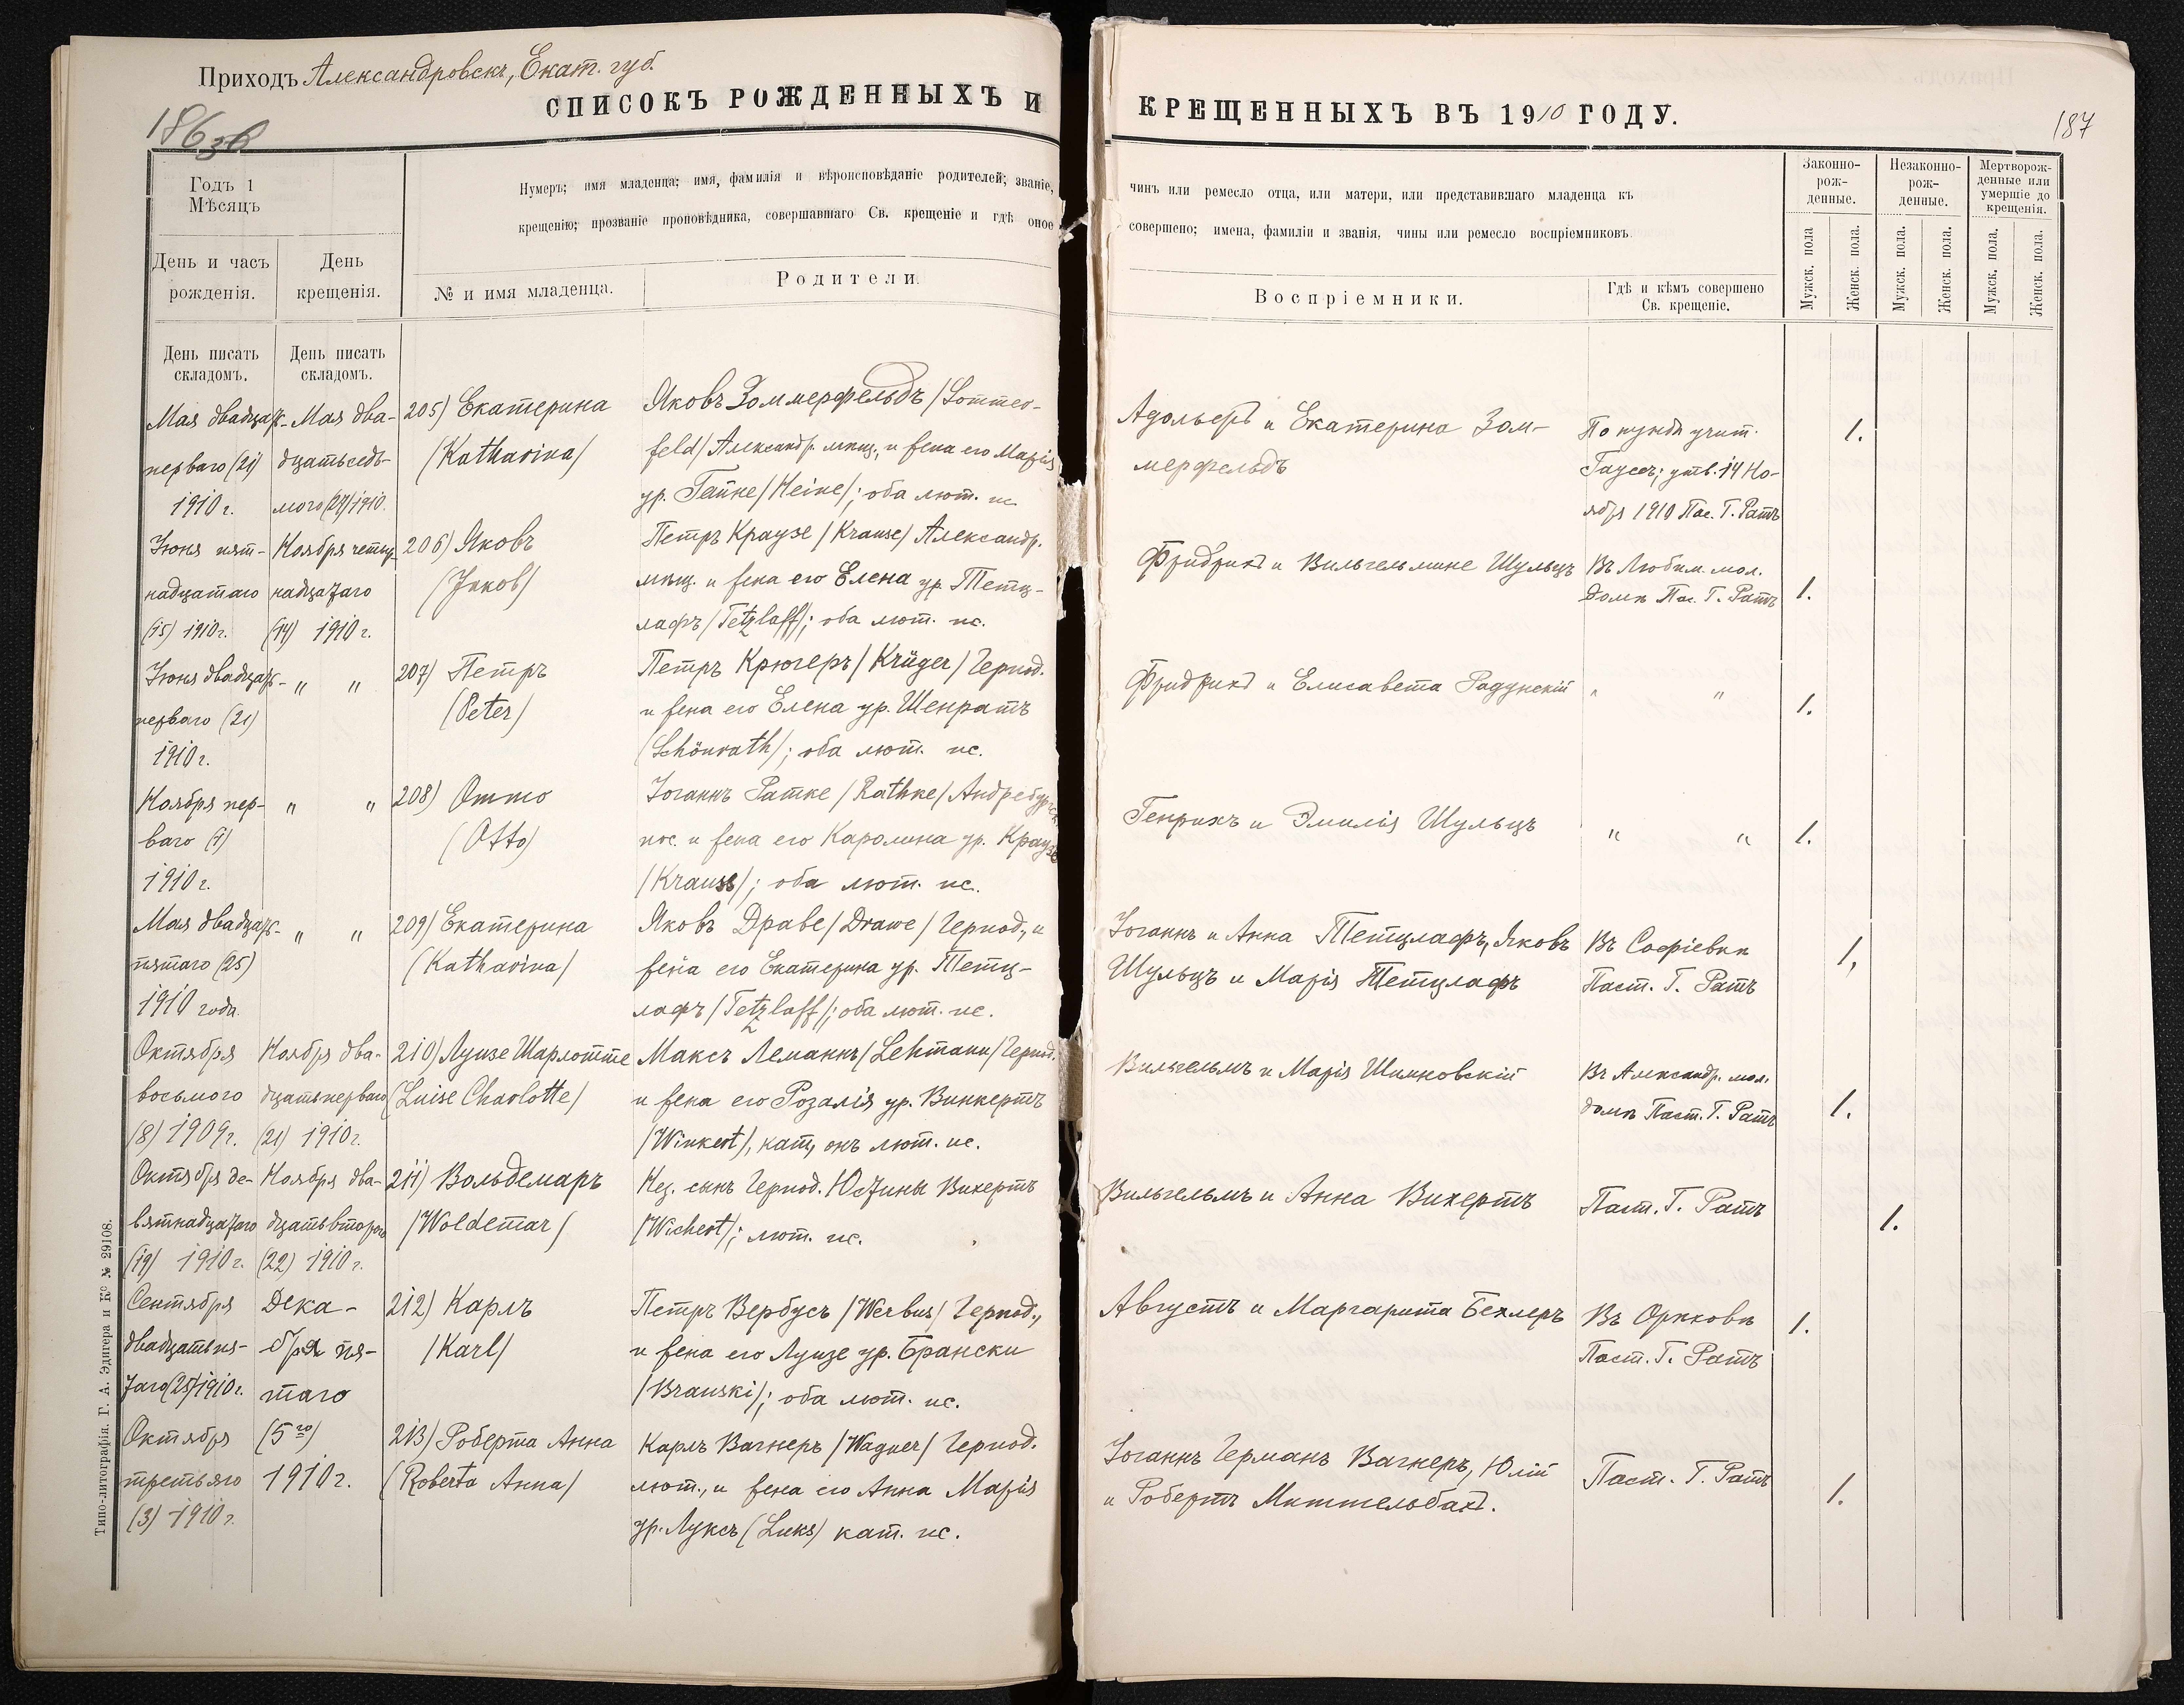 Приходъ Александровскъ, Екат. губ.
СПИСОКЪ РОЖДЕННЫХЪ И
КРЕЩЕННЫХЪ ВЪ 1910 ГОДУ.
186
187
Годъ 1
Мѣсяцъ
Нумеръ; имя младенца; имя, фамилія и вѣроисповѣданіе родителей; званіе,
крещенію; прозваніе проповѣдника, совершавшаго Св. крещеніе и гдѣ оное
чинъ или ремесло отца, или матери, или представившаго младенца къ
совершено; имена, фамиліи и званія, чины или ремесло воспріемниковъ.
День и часъ
рожденія.
День
крещенія.
№ и имя младенца.
Родители.
Воспріемники.
Гдѣ и кѣмъ совершено
Св. крещеніе.
Законно-
рож-
денные.
Незаконно-
рож-
денные.
Мертворож-
денные или
умершіе до
крещенія.
Мужск. пола
Женск. пола.
Мужск. пола.
Женск. пола.
Мужск. пола.
Женск. пола.
День писать
складомъ.
День писать
складомъ.
Мая двадцать-
перваго (21)
1910 г.
Мая два-
дцатьседь-
мого (27) 1910.
205) Екатерина
(Katharina)
Яковъ Зоммерфельдъ /Sommer-
feld/ Александр. мѣщ., и жена его Марія
ур. Гайне /Heine/; оба лют. ис.
Адольфъ и Екатерина Зом-
мерфельдъ
По нуждѣ учит.
Гауссъ; утв. 14 Но-
ября 1910 Пас. Г. Ратъ
1.
Іюня пят-
надцатаго
(15) 1910 г.
Ноября четыр-
надцатаго
(14) 1910 г.
206) Яковъ
(Jakob)
Петръ Краузе /Krause/ Александр.
мѣщ. и жена его Елена ур. Тетц-
лафъ /Tetzlaff/; оба лют. ис.
Фридрихъ и Вильгельмине Шульцъ
Въ Любим. мол.
домѣ Пас. Г. Ратъ
1.
Іюня двадцать-
перваго (21)
1910 г.
" "
207) Петръ
(Peter)
Петръ Крюгеръ /Krüger/ Герпод.
и жена его Елена ур. Шенратъ
/Schönrath/; оба лют. ис.
Фридрихъ и Елисавета Радунскій
" "
1.
Ноября пер-
ваго (1)
1910 г.
" "
208) Отто
(Otto)
Іоганнъ Ратке /Rathke/ Андребургск.
пос. и жена его Каролина ур. Краузе
/Krause/; оба лют. ис.
Генрихъ и Эмилія Шульцъ
" "
1.
Мая двадцать-
пятаго (25)
1910 года.
" "
209) Екатерина
(Katharina)
Яковъ Драве /Drawe/ Герпод., и
жена его Екатерина ур. Тетц-
лафъ /Tetzlaff/; оба лют. ис.
Іоганнъ и Анна Тетцлафъ, Яковъ
Шульцъ и Марія Тетцлафъ
Въ Софіевкѣ
Паст. Г. Ратъ
1,
Октября
восьмого
(8) 1909 г.
Ноября два-
дцатьперваго
(21) 1910 г.
210) Луизе Шарлотте
(Luise Charlotte)
Максъ Леманнъ /Lehmann/ Герпод.
и жена его Розалія ур. Винкертъ
/Winkert/, кат., онъ лют. ис.
Вильгельмъ и Марія Шимковскій
Въ Александр. мол.
домѣ Паст. Г. Ратъ
1.
Октября де-
вятнадцатаго
(19) 1910 г.
Ноября два-
дцатьвторого
(22) 1910 г.
211) Вольдемаръ
/Woldemar/
Нез. сынъ Герпод. Юстины Вихертъ
/Wichert/; лют. ис.
Вильгельмъ и Анна Вихертъ
Паст. Г. Ратъ
1.
Сентября
двадцатьпя-
таго (25) 1910 г.
Дека-
бря пя-
таго
(5го)
1910 г.
212) Карлъ
/Karl/
Петръ Вербусъ /Werbus/ Герпод.,
и жена его Луизе ур. Брански
/Branski/; оба лют. ис.
Августъ и Маргарита Бехлеръ
Въ Орѣховѣ
Паст. Г. Ратъ
1.
Октября
третьяго
(3) 1910 г.
213) Роберта Анна
(Roberta Anna)
Карлъ Вагнеръ /Wagner/ Герпод.
лют., и жена его Анна Марія
ур. Луксъ (Luks) кат. ис.
Іоганнъ Германъ Вагнеръ, Юлій
и Робертъ Миттельбахъ.
Паст. Г. Ратъ
1.
Типо-литографія. Г. А. Эдигера и Ко № 29108.